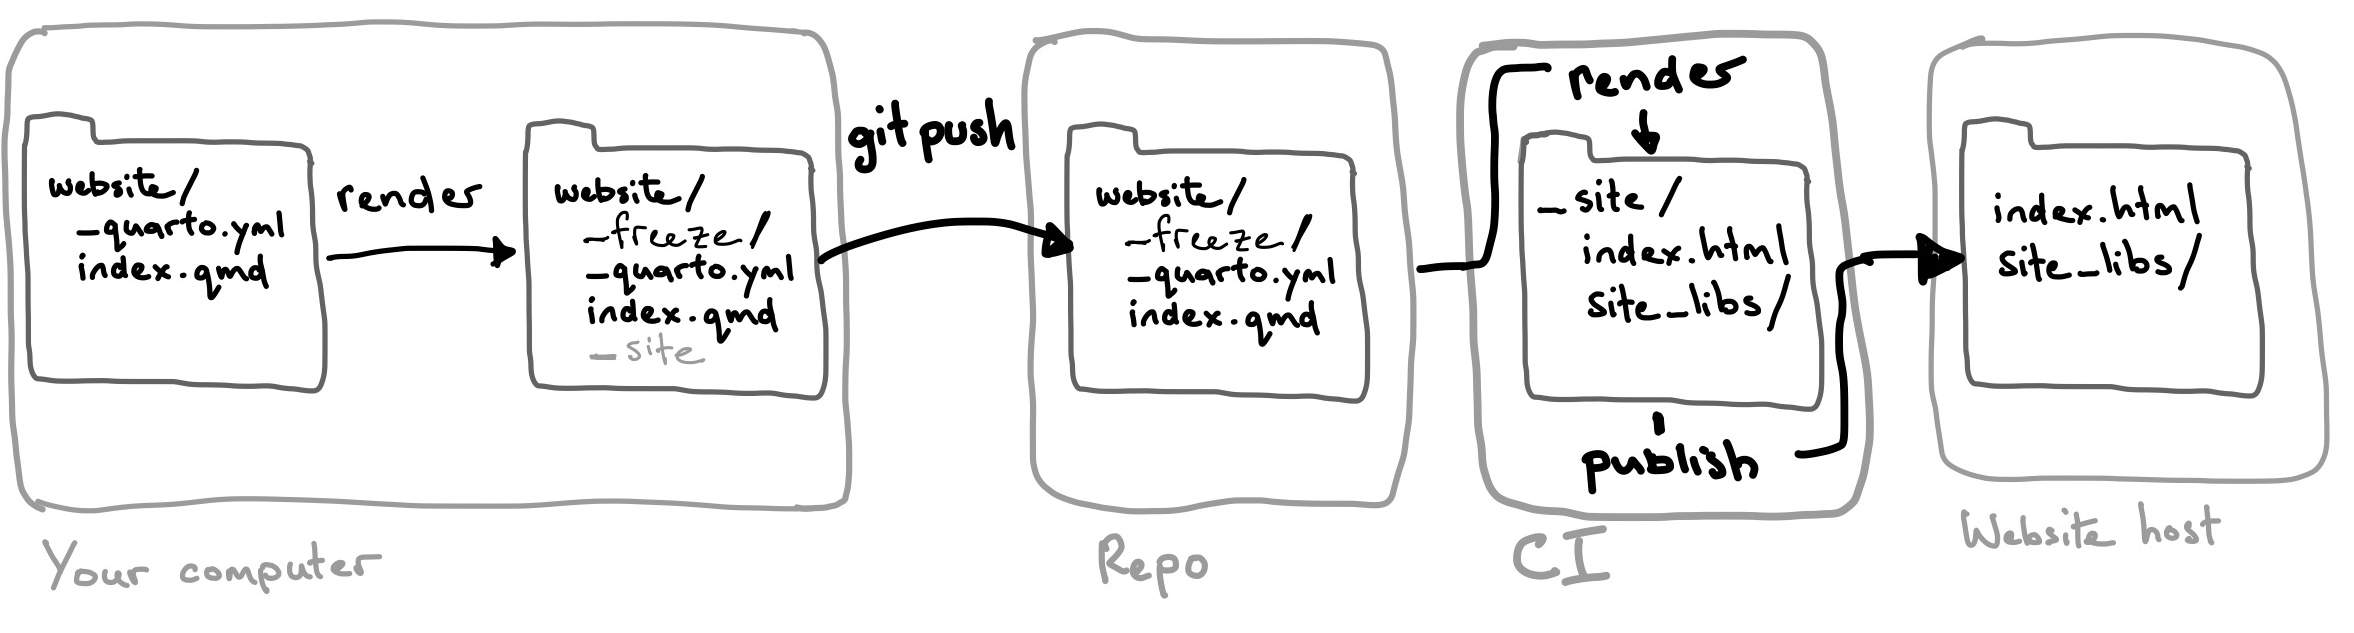 website/
_quarto.yml
index.qmd
render
website/
_freeze/
_quarto.yml
index.qmd
_site
Your computer
git push
website/
_freeze/
_quarto.yml
index.qmd
Repo
render
_site/
index.html
site_libs/
publish
CI
index.html
site_libs/
Website host